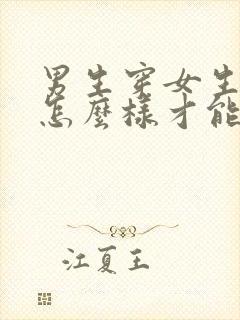 男生穿女生
怎麼樣才能
江夏王